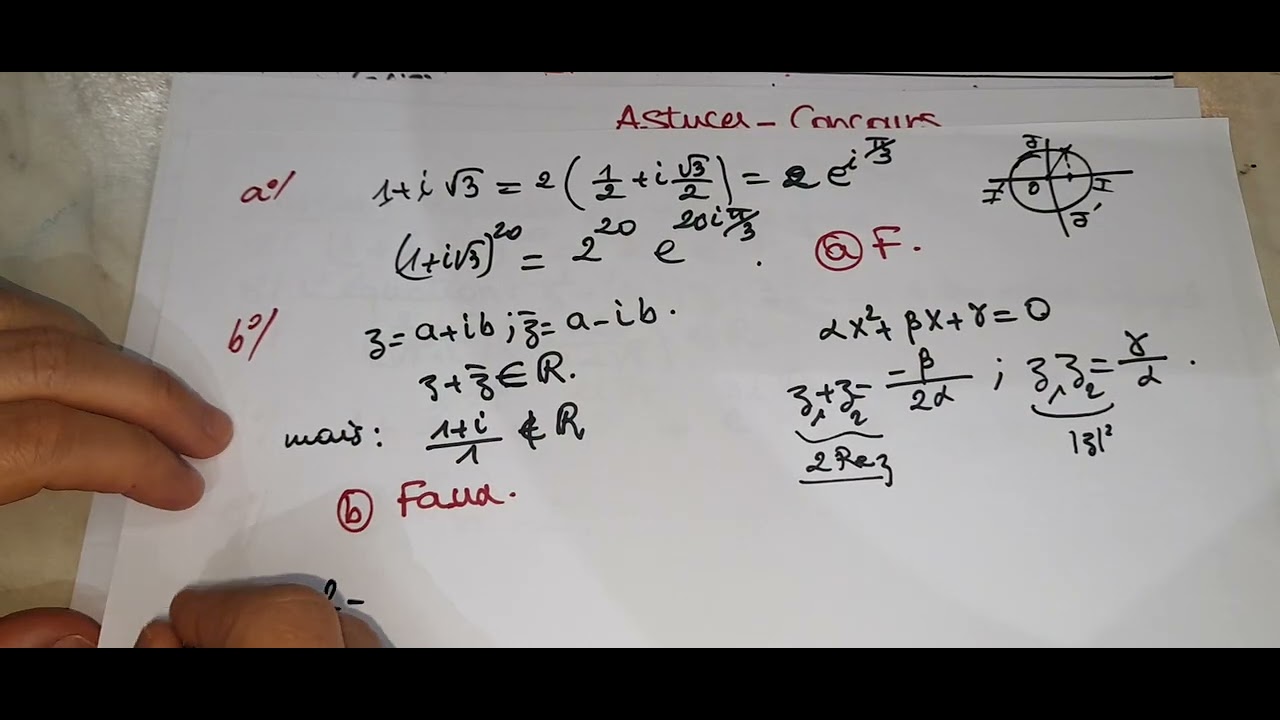 Astuces - Concours
a°/ 1+i√3 = 2(1/2 + i √3/2) = 2 e^{iπ/3}
J
I' O I
J'
(1+i√3)^{20} = 2^{20} e^{20iπ/3}. ⓐ F.
b°/ z = a+ib ; z̄ = a-ib.
z + z̄ ∈ ℝ.
mais : (1+i)/1 ∉ ℝ
ⓑ Faux.
αX² + βX + γ = 0
z₁+z₂ = -β/2α ; z₁z₂ = γ/α.
2Re z |z|²
2-